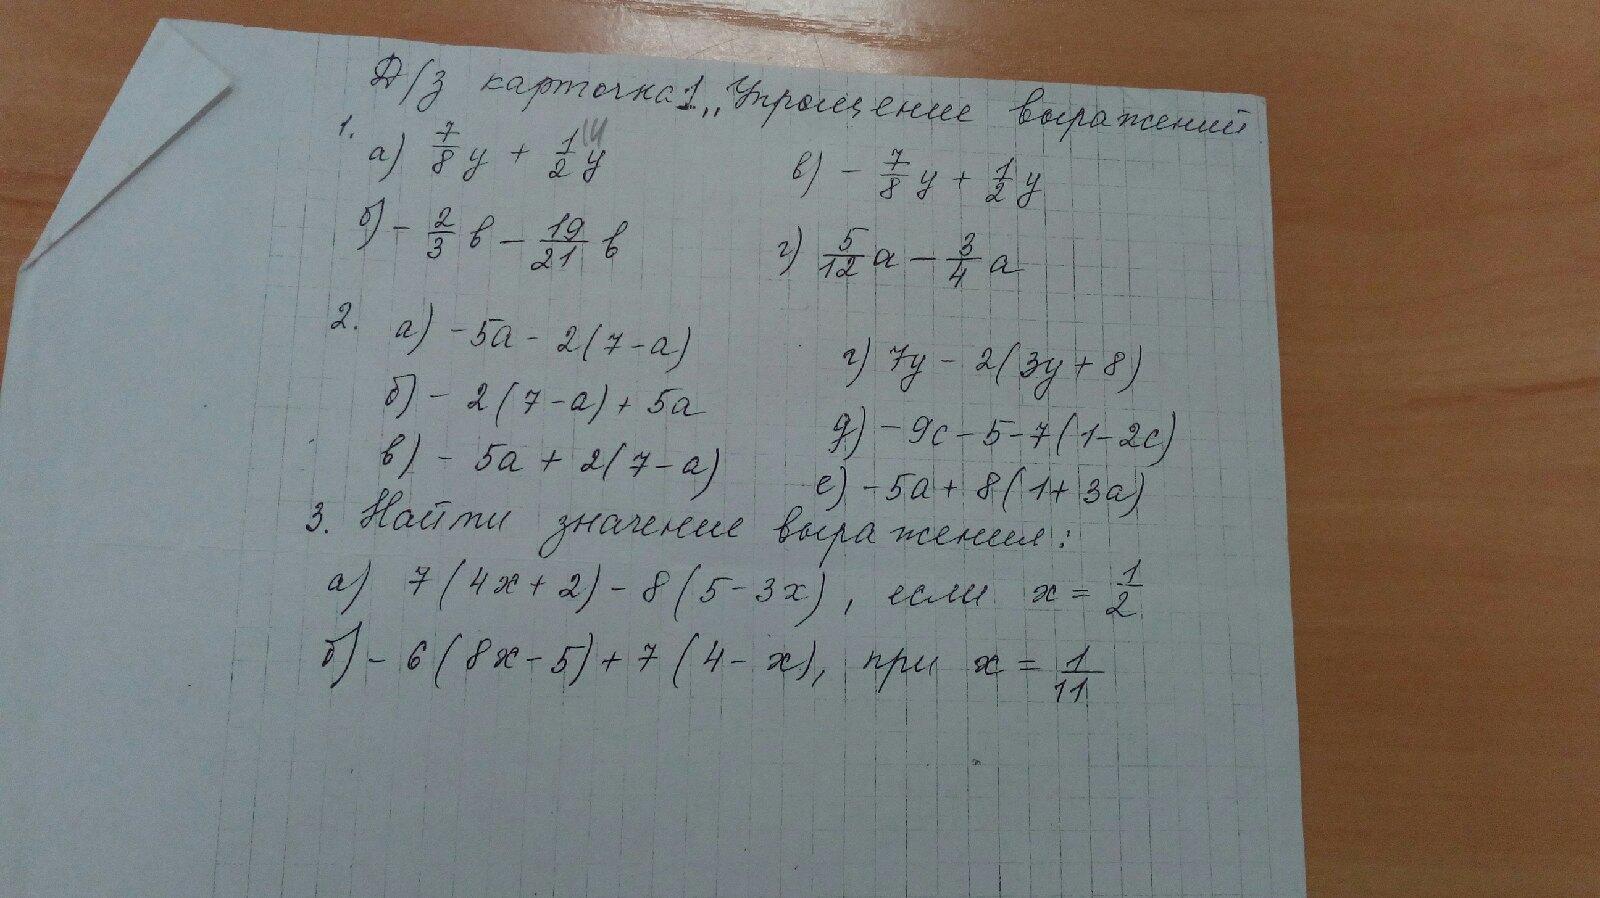 Д/з карточка 1 „Упрощение выражений
1.
а) 7/8 y + 1/2 y в) - 7/8 y + 1/2 y
б) - 2/3 в - 19/21 в г) 5/12 a - 3/4 a
2. а) -5a - 2(7-a) г) 7y - 2(3y+8)
б) - 2(7-a) + 5a д) -9c - 5 - 7(1-2c)
в) - 5a + 2(7-a) е) -5a + 8(1+3a)
3. Найти значение выражения:
а) 7(4x+2) - 8(5-3x), если x = 1/2
б) - 6(8x-5) + 7(4-x), при x = 1/11